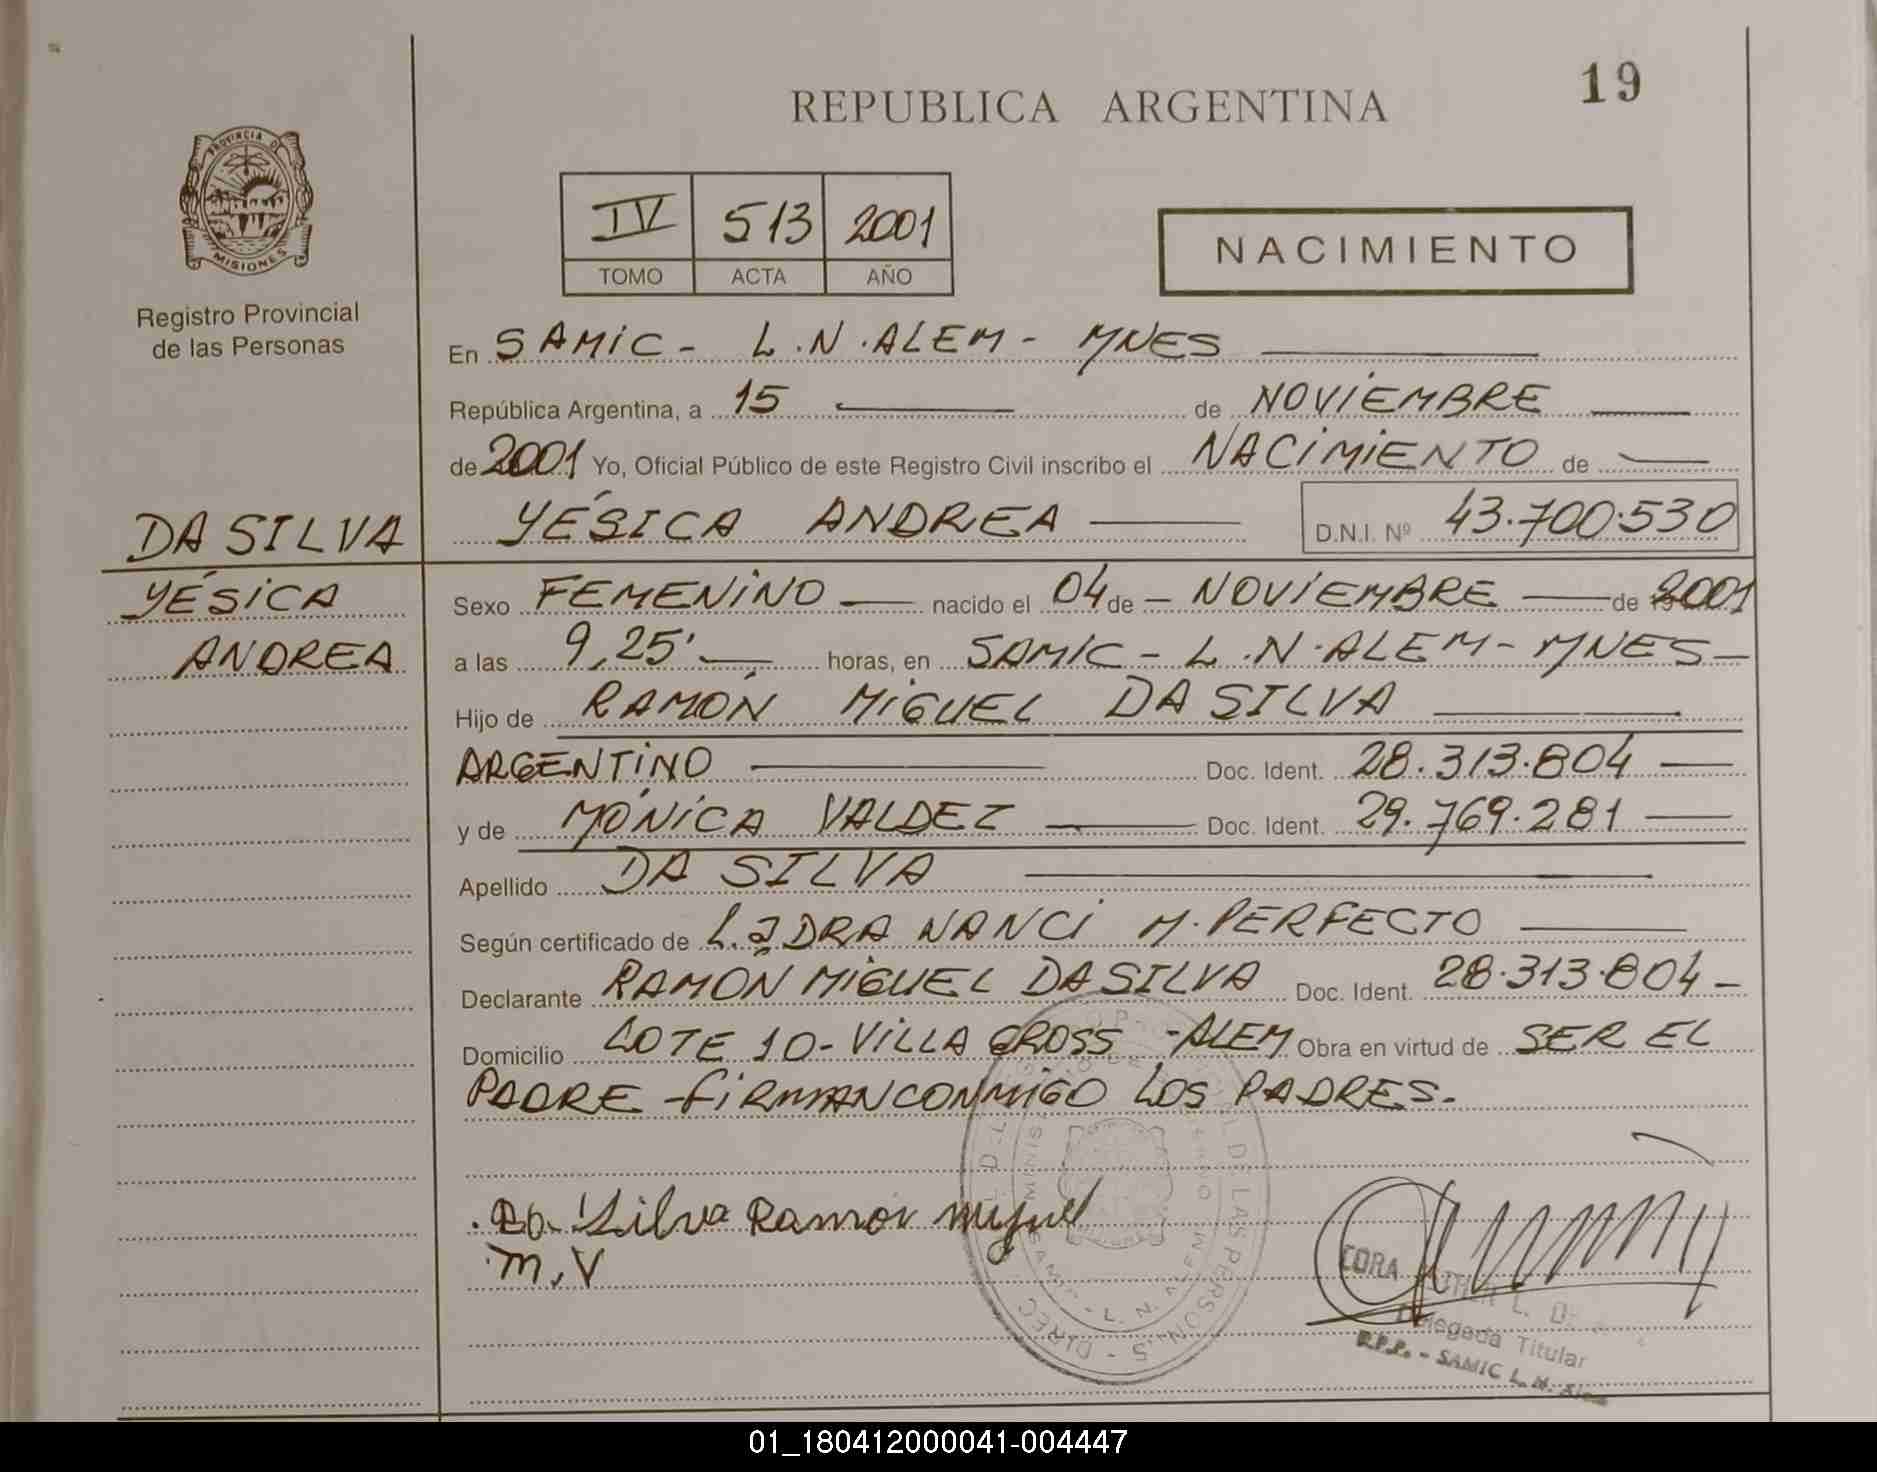 19
REPUBLICA ARGENTINA
PROVINCIA DE
MISIONES
Registro Provincial
de las Personas
IV 513 2001
TOMO ACTA AÑO
NACIMIENTO
En SAMIC - L.N. ALEM - MNES
República Argentina, a 15 de NOVIEMBRE
de 2001 Yo, Oficial Público de este Registro Civil inscribo el NACIMIENTO de
YÉSICA ANDREA D.N.I. Nº 43.700.530
DA SILVA
YÉSICA
ANDREA
Sexo FEMENINO nacido el 04 de - NOVIEMBRE de 2001
a las 9,25' horas, en SAMIC - L.N. ALEM - MNES -
Hijo de RAMÓN MIGUEL DA SILVA
ARGENTINO Doc. Ident. 28.313.804
y de MÓNICA VALDEZ Doc. Ident. 29.769.281
Apellido DA SILVA
Según certificado de L.a DRA NANCI M. PERFECTO
Declarante RAMÓN MIGUEL DA SILVA Doc. Ident. 28.313.804 -
Domicilio LOTE 10 - VILLA GROSS - ALEM Obra en virtud de SER EL
PADRE - FIRMAN CONMIGO LOS PADRES.
Silva Ramon Miguel
M.V
CORA L.
Delegada Titular
R.P.P. - SAMIC L. N. Alem
01_180412000041-004447